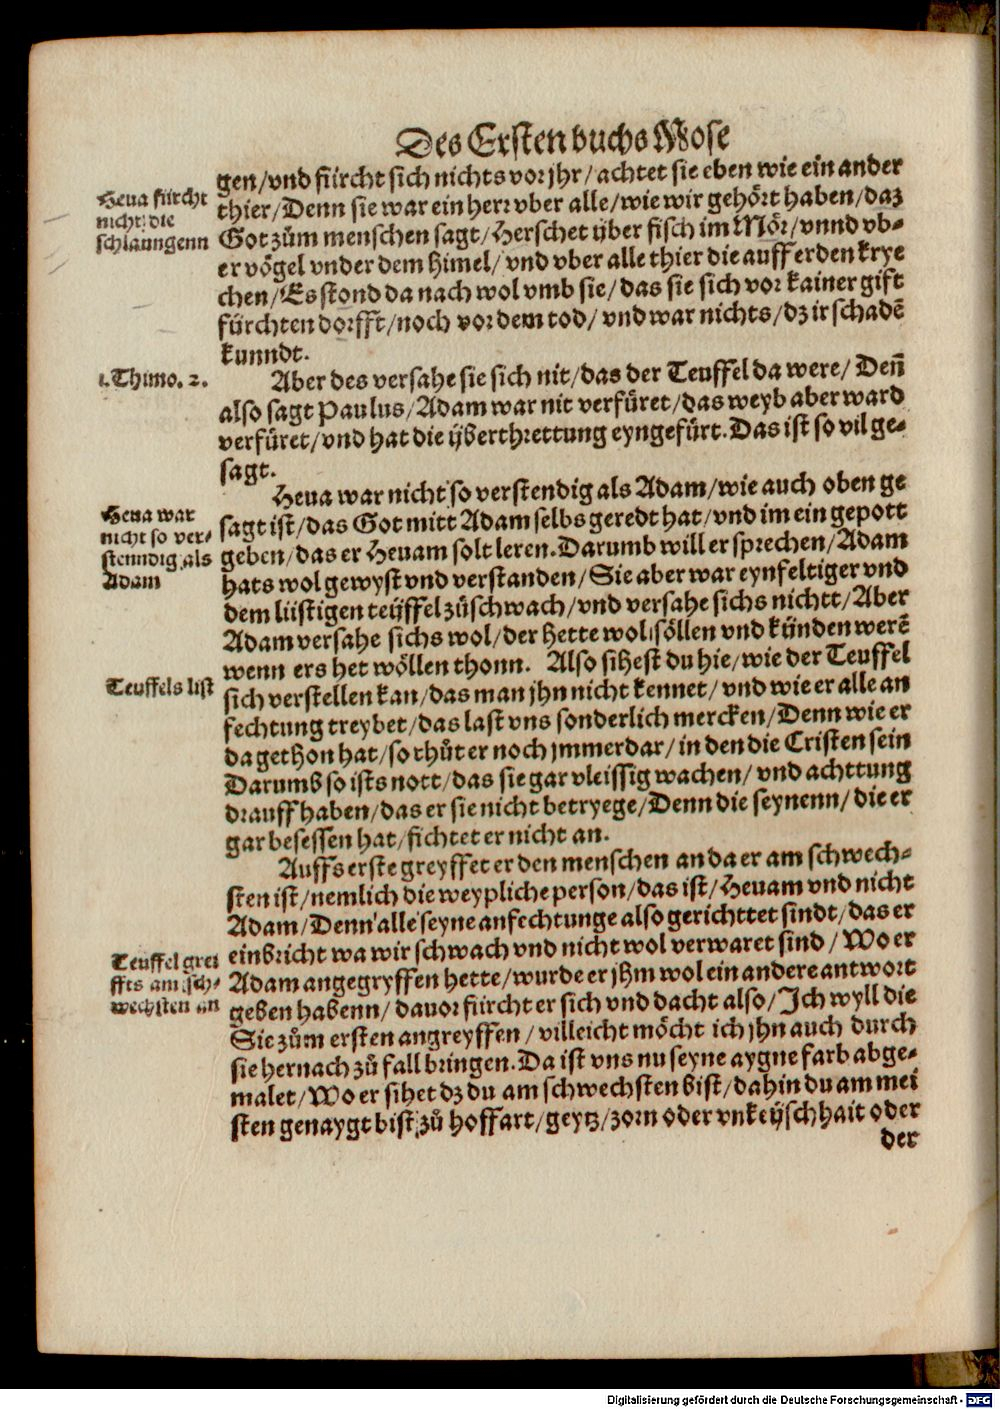 Des Ersten buchs Mose
gen/vnd fürcht sich nichts vor jhr/achtet sie eben wie ein ander
thier/Denn sie war ein herr vber alle/wie wir gehört haben/daz
Got zům menschen sagt/Herschet yber fisch im Mör/vnnd vb-
er vögel vnder dem himel/vnd vber alle thier die auff erden krye
chen/Es stond da nach wol vmb sie/das sie sich vor kainer gift
fürchten dorfft/noch vor dem tod/vnd war nichts/dz ir schadē
kunndt.
Heua fürcht
nicht die
schlaungenn
Aber des versahe sie sich nit/das der Teuffel da were/Deñ
also sagt Paulus/Adam war nit verfüret/das weyb aber ward
verfüret/vnd hat die ÿberthrettung eyngefürt.Das ist so vil ge-
sagt.
1.Thimo. 2.
Heua war nicht so verstendig als Adam/wie auch oben ge
sagt ist/das Got mitt Adam selbs geredt hat/vnd im ein gepott
geben/das er Heuam solt leren.Darumb will er sprechen/Adam
hats wol gewyst vnd verstanden/Sie aber war eynfeltiger vnd
dem lüstigen teüffel zůschwach/vnd versahe sichs nichtt/Aber
Adam versahe sichs wol/der hette wol söllen vnd künden werē
wenn ers het wöllen thonn. Also sihest du hie/wie der Teuffel
sich verstellen kan/das man jhn nicht kennet/vnd wie er alle an
fechtung treybet/das last vns sonderlich mercken/Denn wie er
da gethon hat/so thůt er noch jmmerdar/in den die Cristen sein
Darumb so ists nott/das sie gar vleissig wachen/vnd achttung
drauff haben/das er sie nicht betryege/Denn die seynenn/die er
gar besessen hat/fichtet er nicht an.
Heua war
nicht so ver-
stenndig als
Adam
Teuffels list
Auffs erste greyffet er den menschen an da er am schwech-
sten ist/nemlich die weypliche person/das ist/Heuam vnd nicht
Adam/Denn alle seyne anfechtunge also gerichttet sindt/das er
einbricht wa wir schwach vnd nicht wol verwaret sind/Wo er
Adam angegryffen hette/wurde er jhm wol ein andere antwort
geben habenn/dauor fürcht er sich vnd dacht also/Ich wyll die
Sie zům ersten angreyffen/villeicht möcht ich jhn auch durch
sie hernach zů fall bringen.Da ist vns nu seyne aygne farb abge-
malet/Wo er sihet dz du am schwechsten bist/dahin du am mei
sten genaygt bist zů hoffart/geytz/zorn oder vnkeÿschhait oder
der
Teuffel grei
ffts am sch-
wechsten an
Digitalisierung gefördert durch die Deutsche Forschungsgemeinschaft - DFG